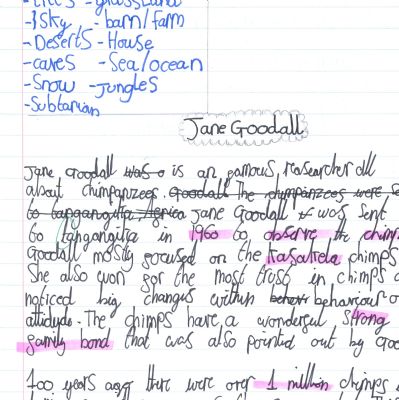 -Trees -grassland
-Sky -barn/farm
-Deserts -House
-caves -Sea/ocean
-Snow -Jungles
-Subtarian
Jane Goodall
Jane Goodall was a is an famous researcher all
about chimpanzees. Goodall The chimpanzees were s
to tanganyika Africa Jane Goodall was sent
to tangangita in 1960 to observe the chimp
Goodall mostly focused on the Kasakela chimps
She also won for the most trust in chimps a
noticed big changes within behaviour o
attidude. The chimps have a wonderful strong
family bond that was also pointed out by Goo
100 years ago there were over 1 million chimps